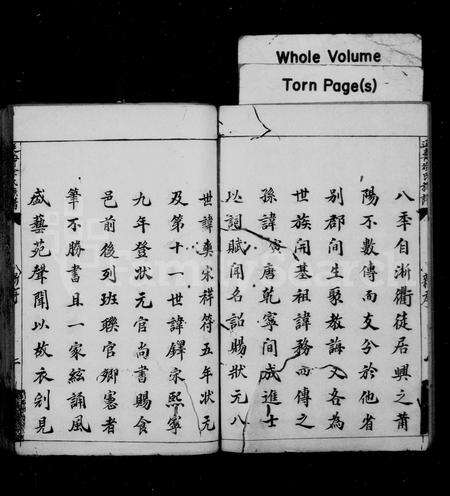 Whole Volume
Torn Page(s)
八季自漸衢徒居興之莆
陽不數傳而支分於他省
別郡間生聚教誨又各為
世族開基祖諱務而傳之
孫諱寅唐乾寧間成進士
以詞賦聞名詔賜狀元八
世諱奭宋祥符五年狀元
及第十一世諱鐸宋熙寧
九年登狀元官尚書賜食
邑前後列班聯官卿憲者
筆不勝書且一家絃誦風
盛藝苑聲聞以故衣剑見